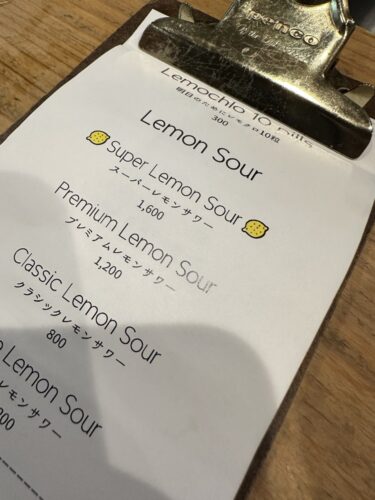 PENCO
Lemochlo 10 pills
明日のためにレモクロ10粒
300
Lemon Sour
Super Lemon Sour
スーパーレモンサワー
1,600
Premium Lemon Sour
プレミアムレモンサワー
1,200
Classic Lemon Sour
クラシックレモンサワー
800
Lemon Sour
レモンサワー